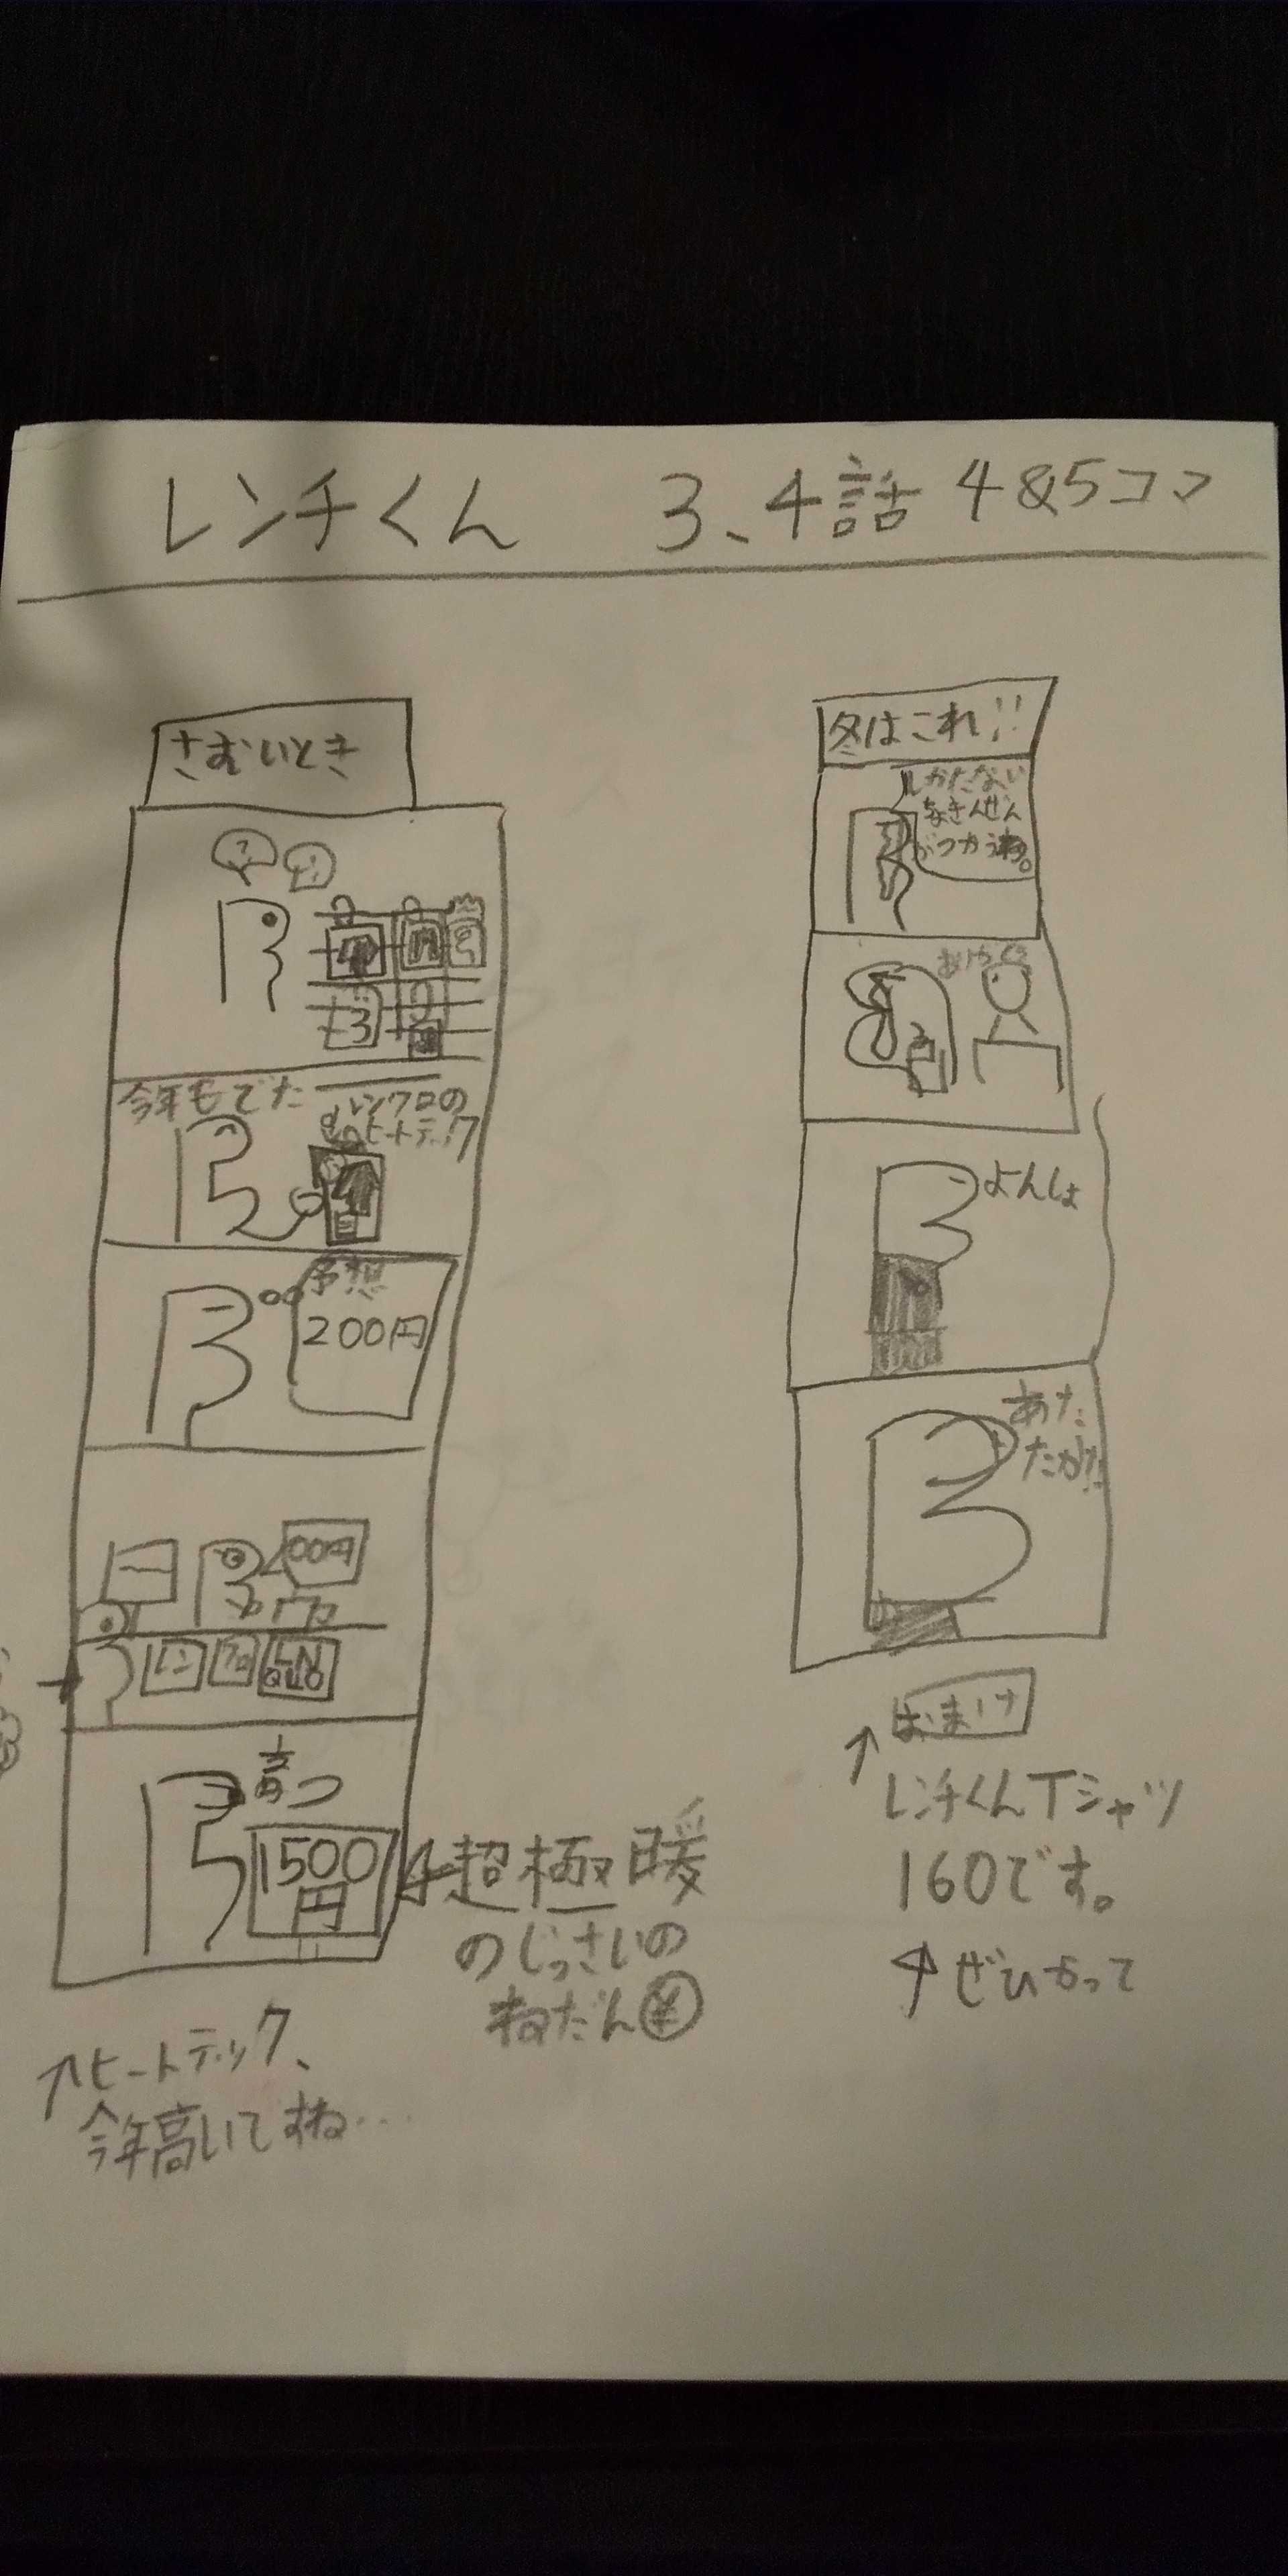 レンチくん 3、4話 4&5コマ
さむいとき
?
今年もでた
レンクロの
ヒートテック
予想
200円
00円
レン
クロ
LN
QLO
高っ
1500
円
←超極暖
のじっさいの
ねだん¥
↑ヒートテック、
今年高いですね…
冬はこれ!!
しかたない
ちょきんぜん
ぶつかうね。
よいしょ
あた
たか!!
おまけ
↑レンチくんTシャツ
160です。
↑ぜひかって